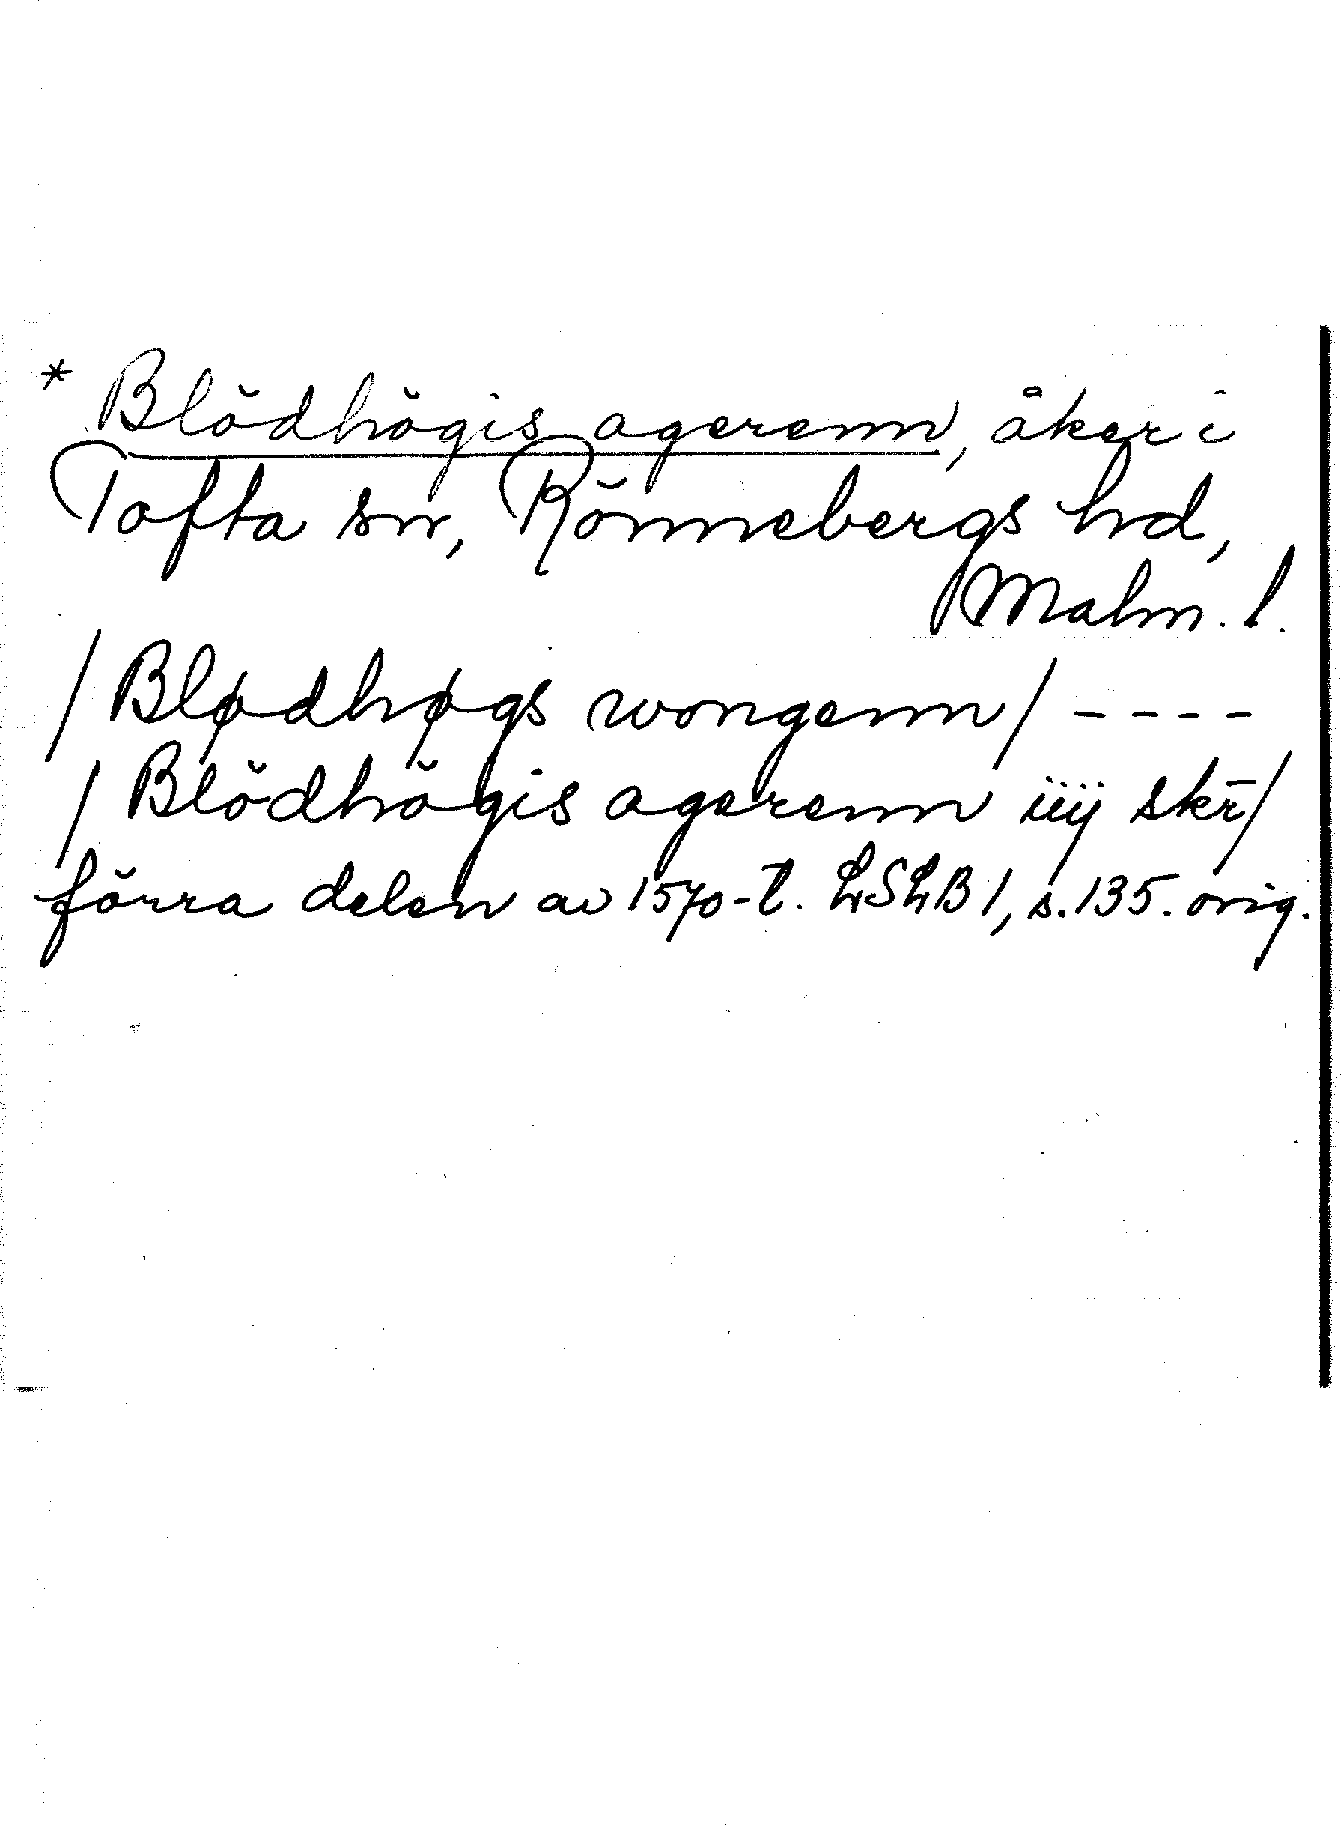 * Blödhögis agerenn, åker i
Tofta sn, Rönnebergs hd,
Malm. l.
/Blødhøgs wongenn/ - - - -
/Blödhögis agerenn iiij skr̄/
förra delen av 1570-t. LSLB 1, s. 135. orig.